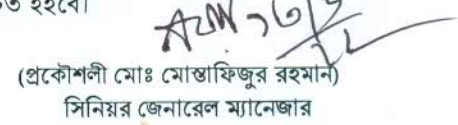 হইবে।
(প্রকৌশলী মোঃ মোস্তাফিজুর রহমান)
সিনিয়র জেনারেল ম্যানেজার